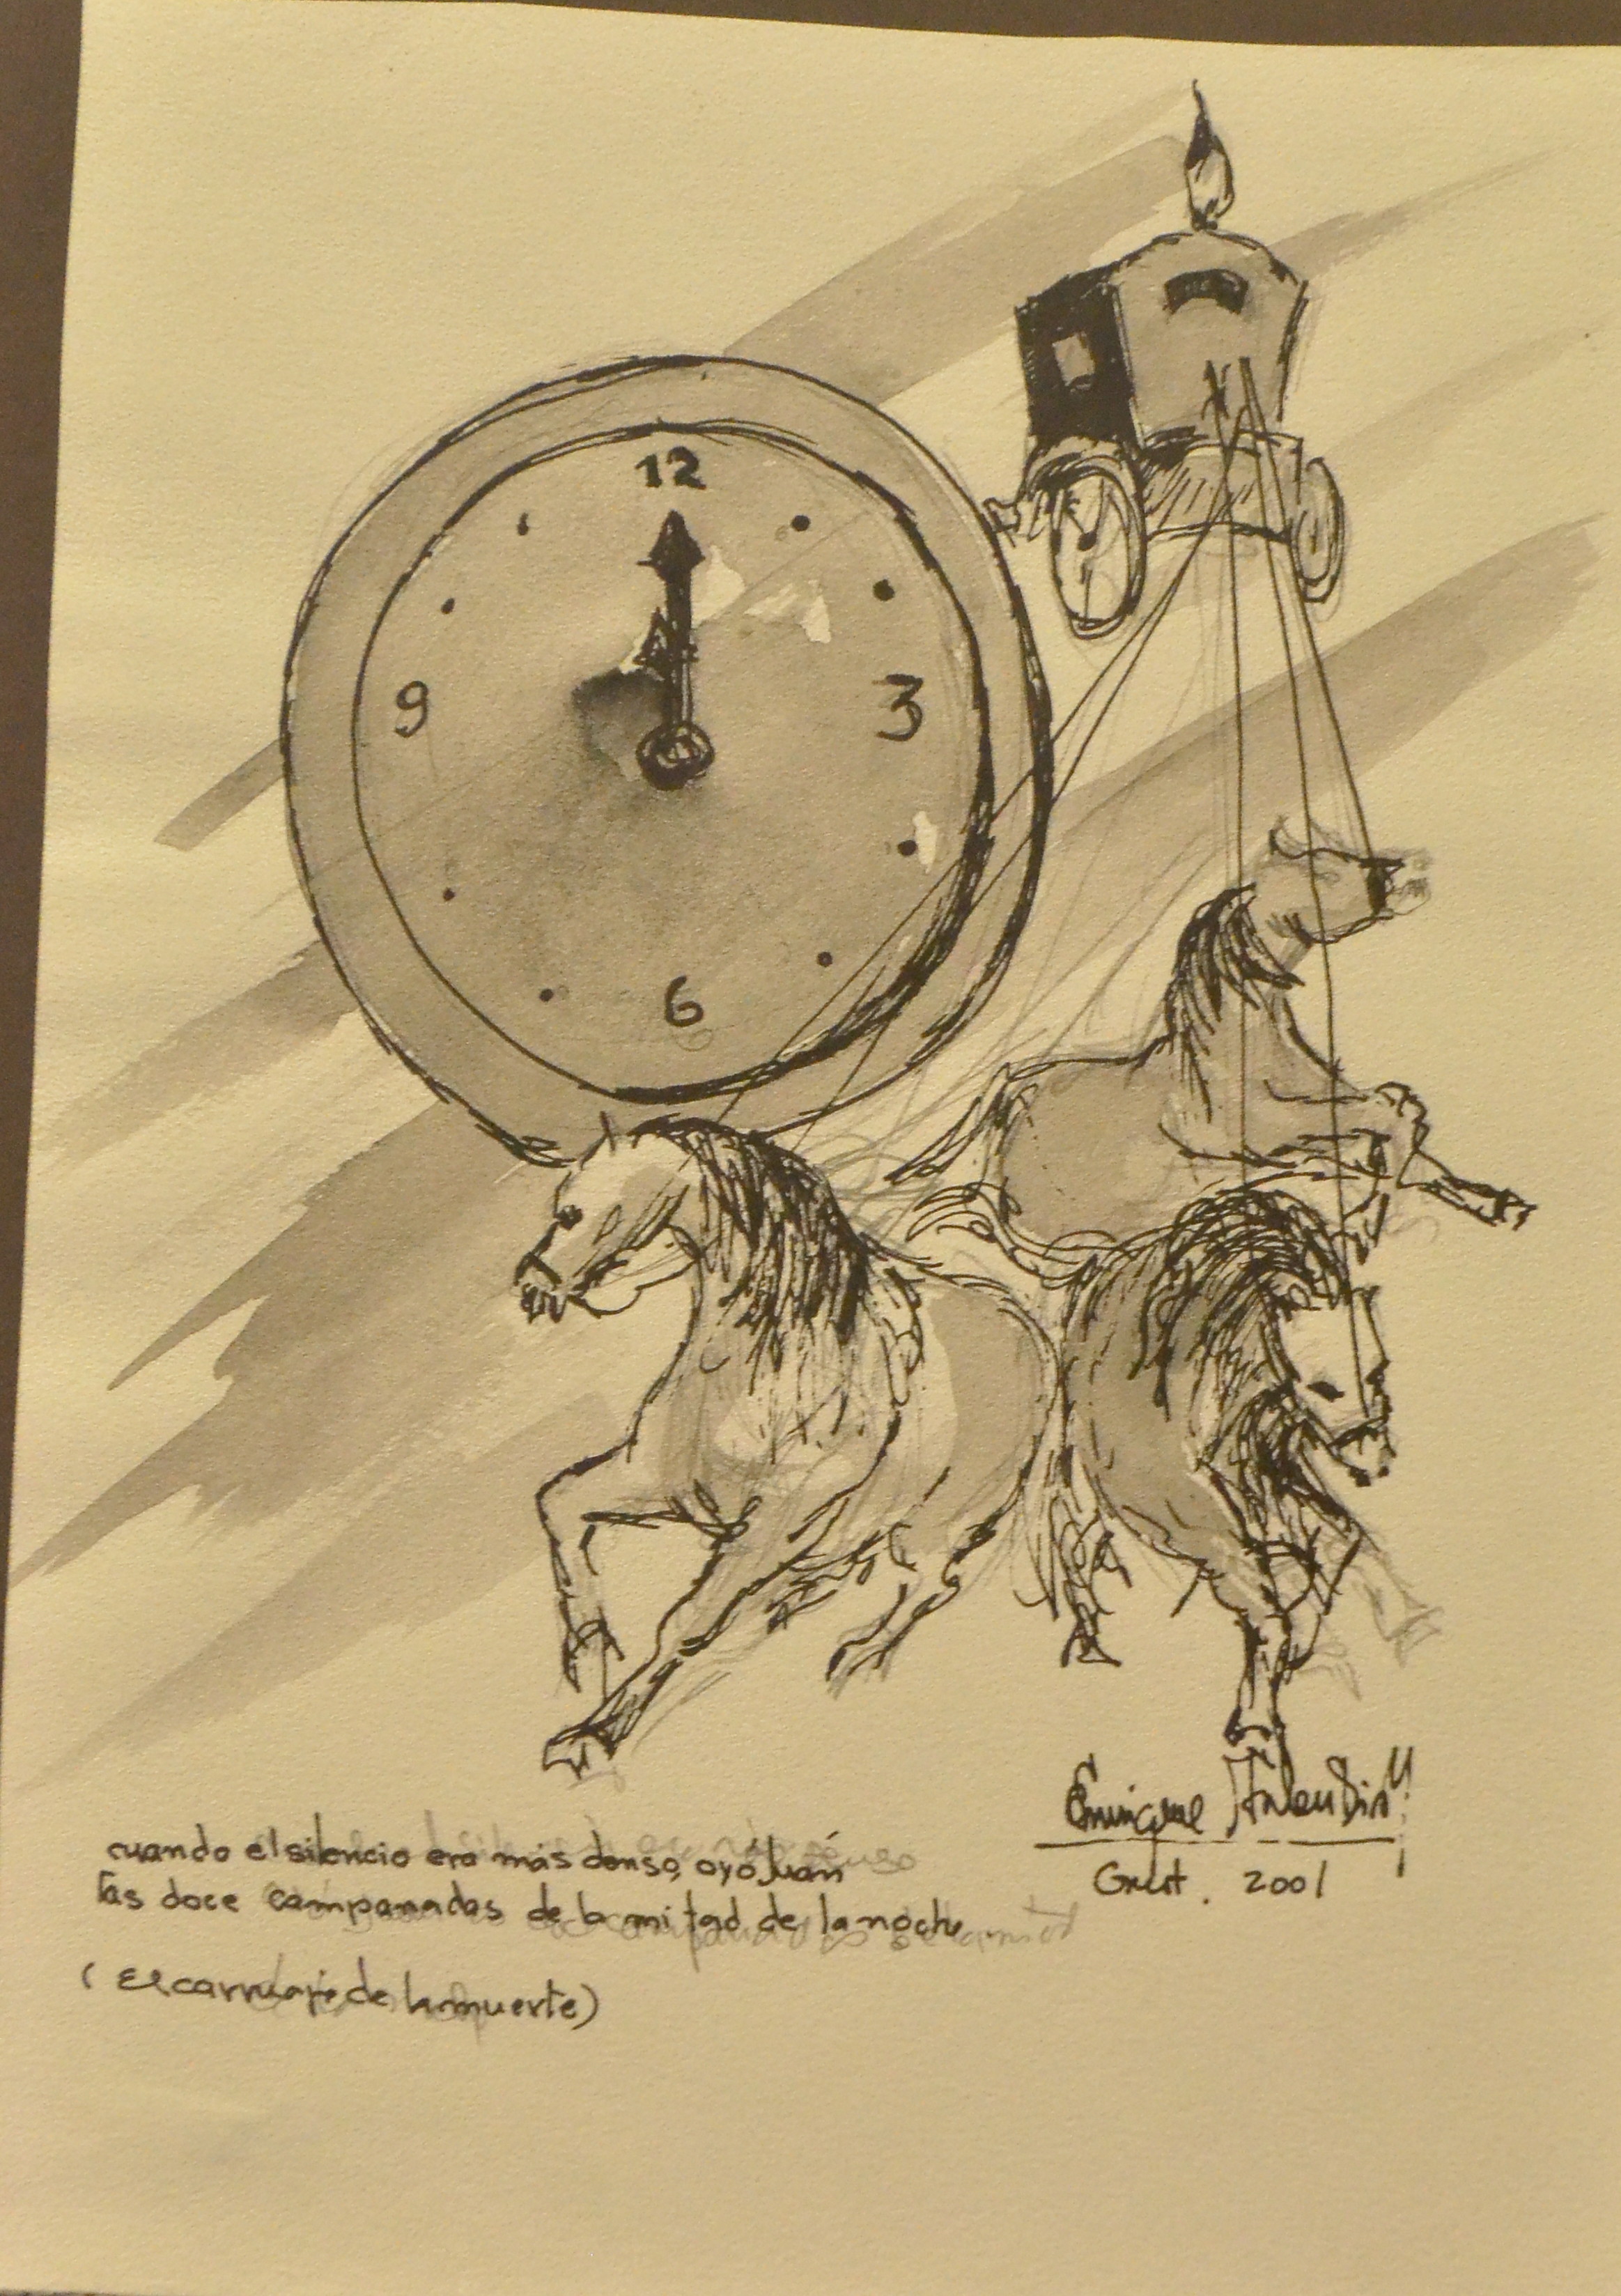 12
9
3
6
Enrique
2001
cuando el silencio era más denso, oyó Juan
las doce campanadas de la mitad de la noche
(El carruaje de la muerte)